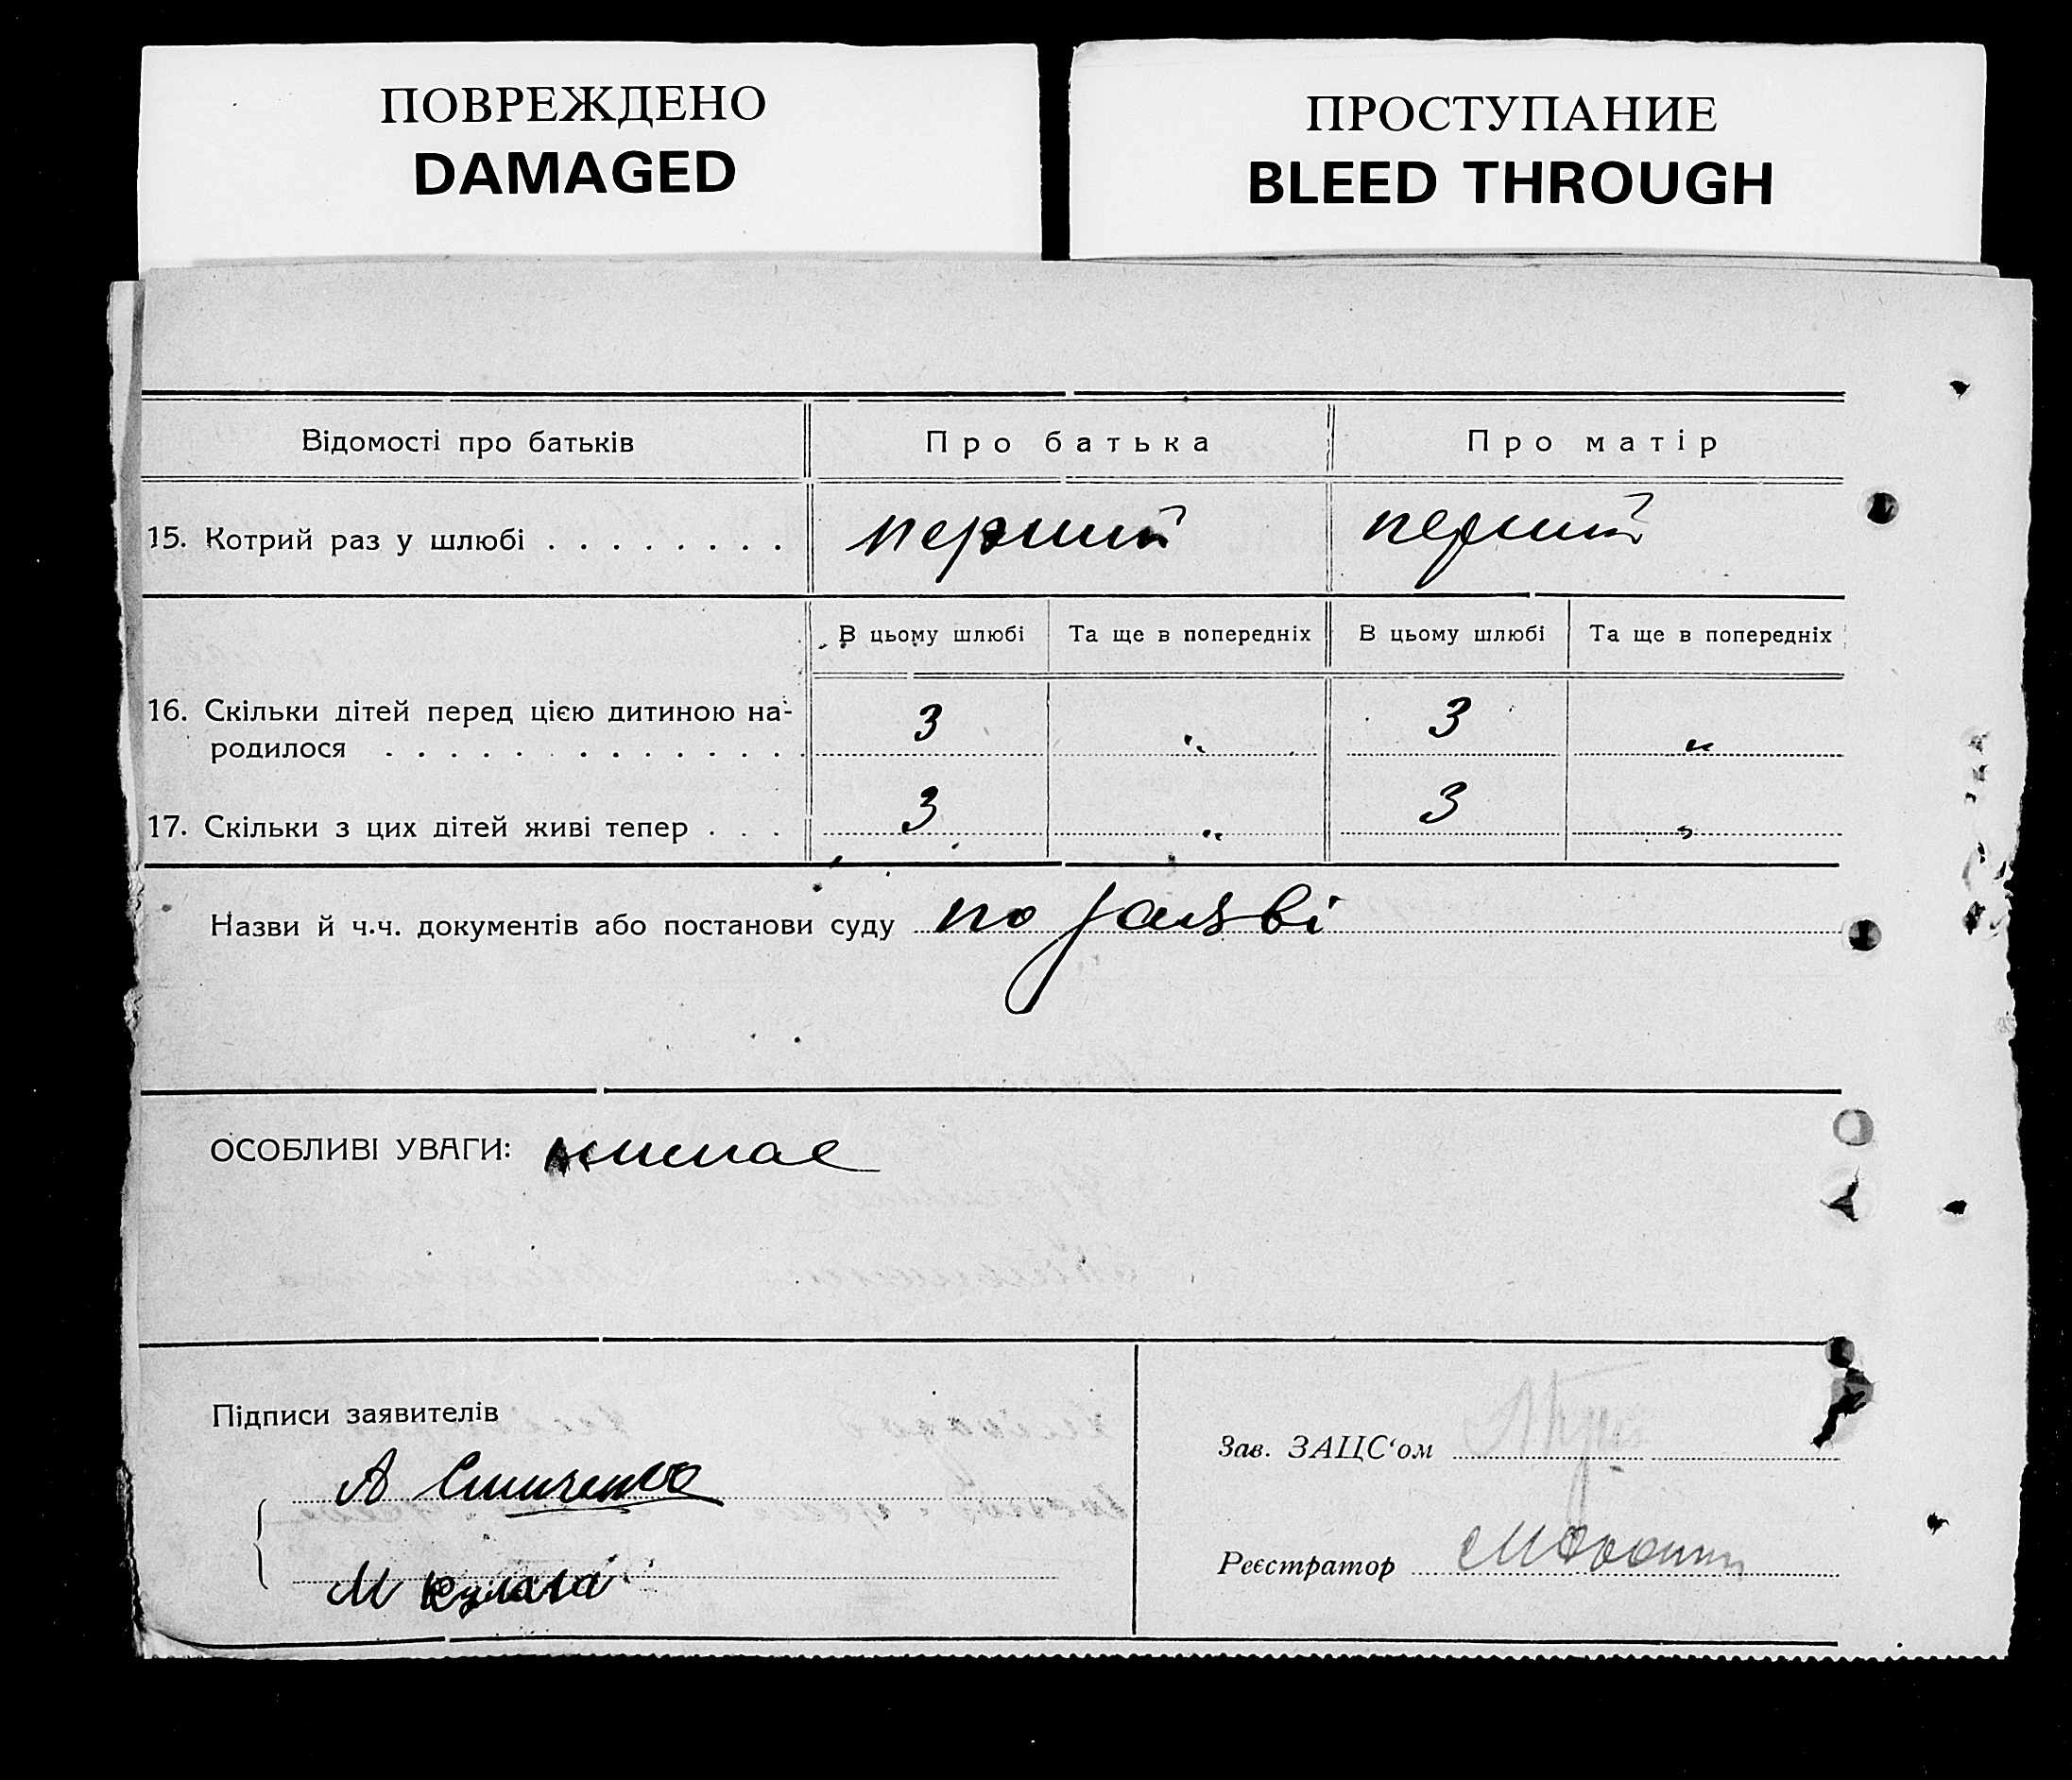 ПОВРЕЖДЕНО
DAMAGED
ПРОСТУПАНИЕ
BLEED THROUGH
Відомості про батьків Про батька Про матір
15. Котрий раз у шлюбі . . . . . . . . перший перший
В цьому шлюбі Та ще в попередніх В цьому шлюбі Та ще в попередніх
16. Скільки дітей перед цією дитиною на-
родилося . . . . . . . . . . . . . . 3 „ 3 „
17. Скільки з цих дітей живі тепер . . . 3 „ 3 „
Назви й ч.ч. документів або постанови суду по заяві
ОСОБЛИВІ УВАГИ: немає
Підписи заявителів
А
М Кулага
Зав. ЗАЦС‘ом
Реєстратор